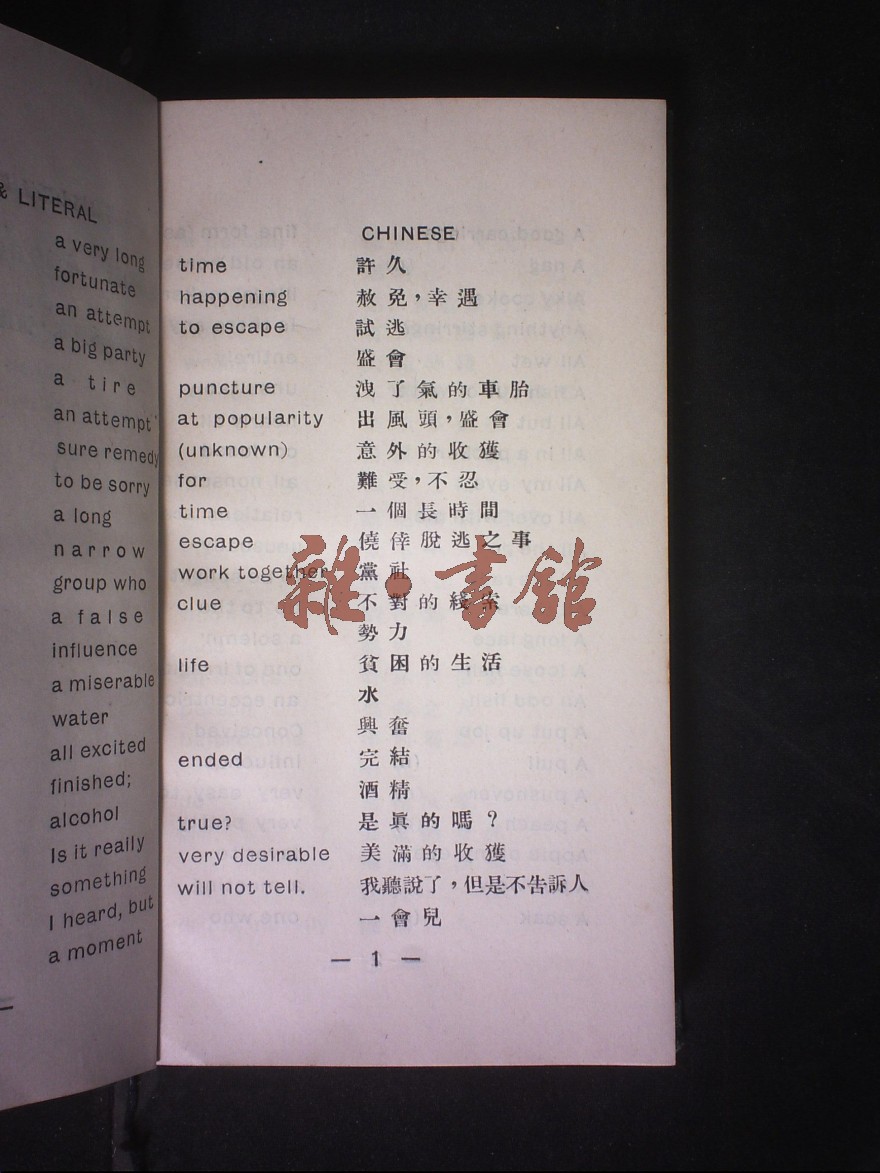 & LITERAL CHINESE
a very long time 許久
fortunate happening 赦免，幸遇
an attempt to escape 試逃
a big party 盛會
a tire puncture 洩了氣的車胎
an attempt at popularity 出風頭，盛會
sure remedy (unknown) 意外的收獲
to be sorry for 難受，不忍
a long time 一個長時間
narrow escape 僥倖脫逃之事
group who work together 黨社
a false clue 不對的綫索
influence 勢力
a miserable life 貧困的生活
water 水
all excited 興奮
finished; ended 完結
alcohol 酒精
Is it really true? 是眞的嗎？
something very desirable 美滿的收獲
I heard, but will not tell. 我聽說了，但是不告訴人
a moment 一會兒
— 1 —
雜·書館